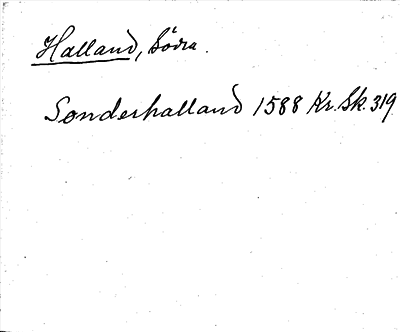 Halland, Södra.
Sønderhalland 1588 Kr. Sk. 319